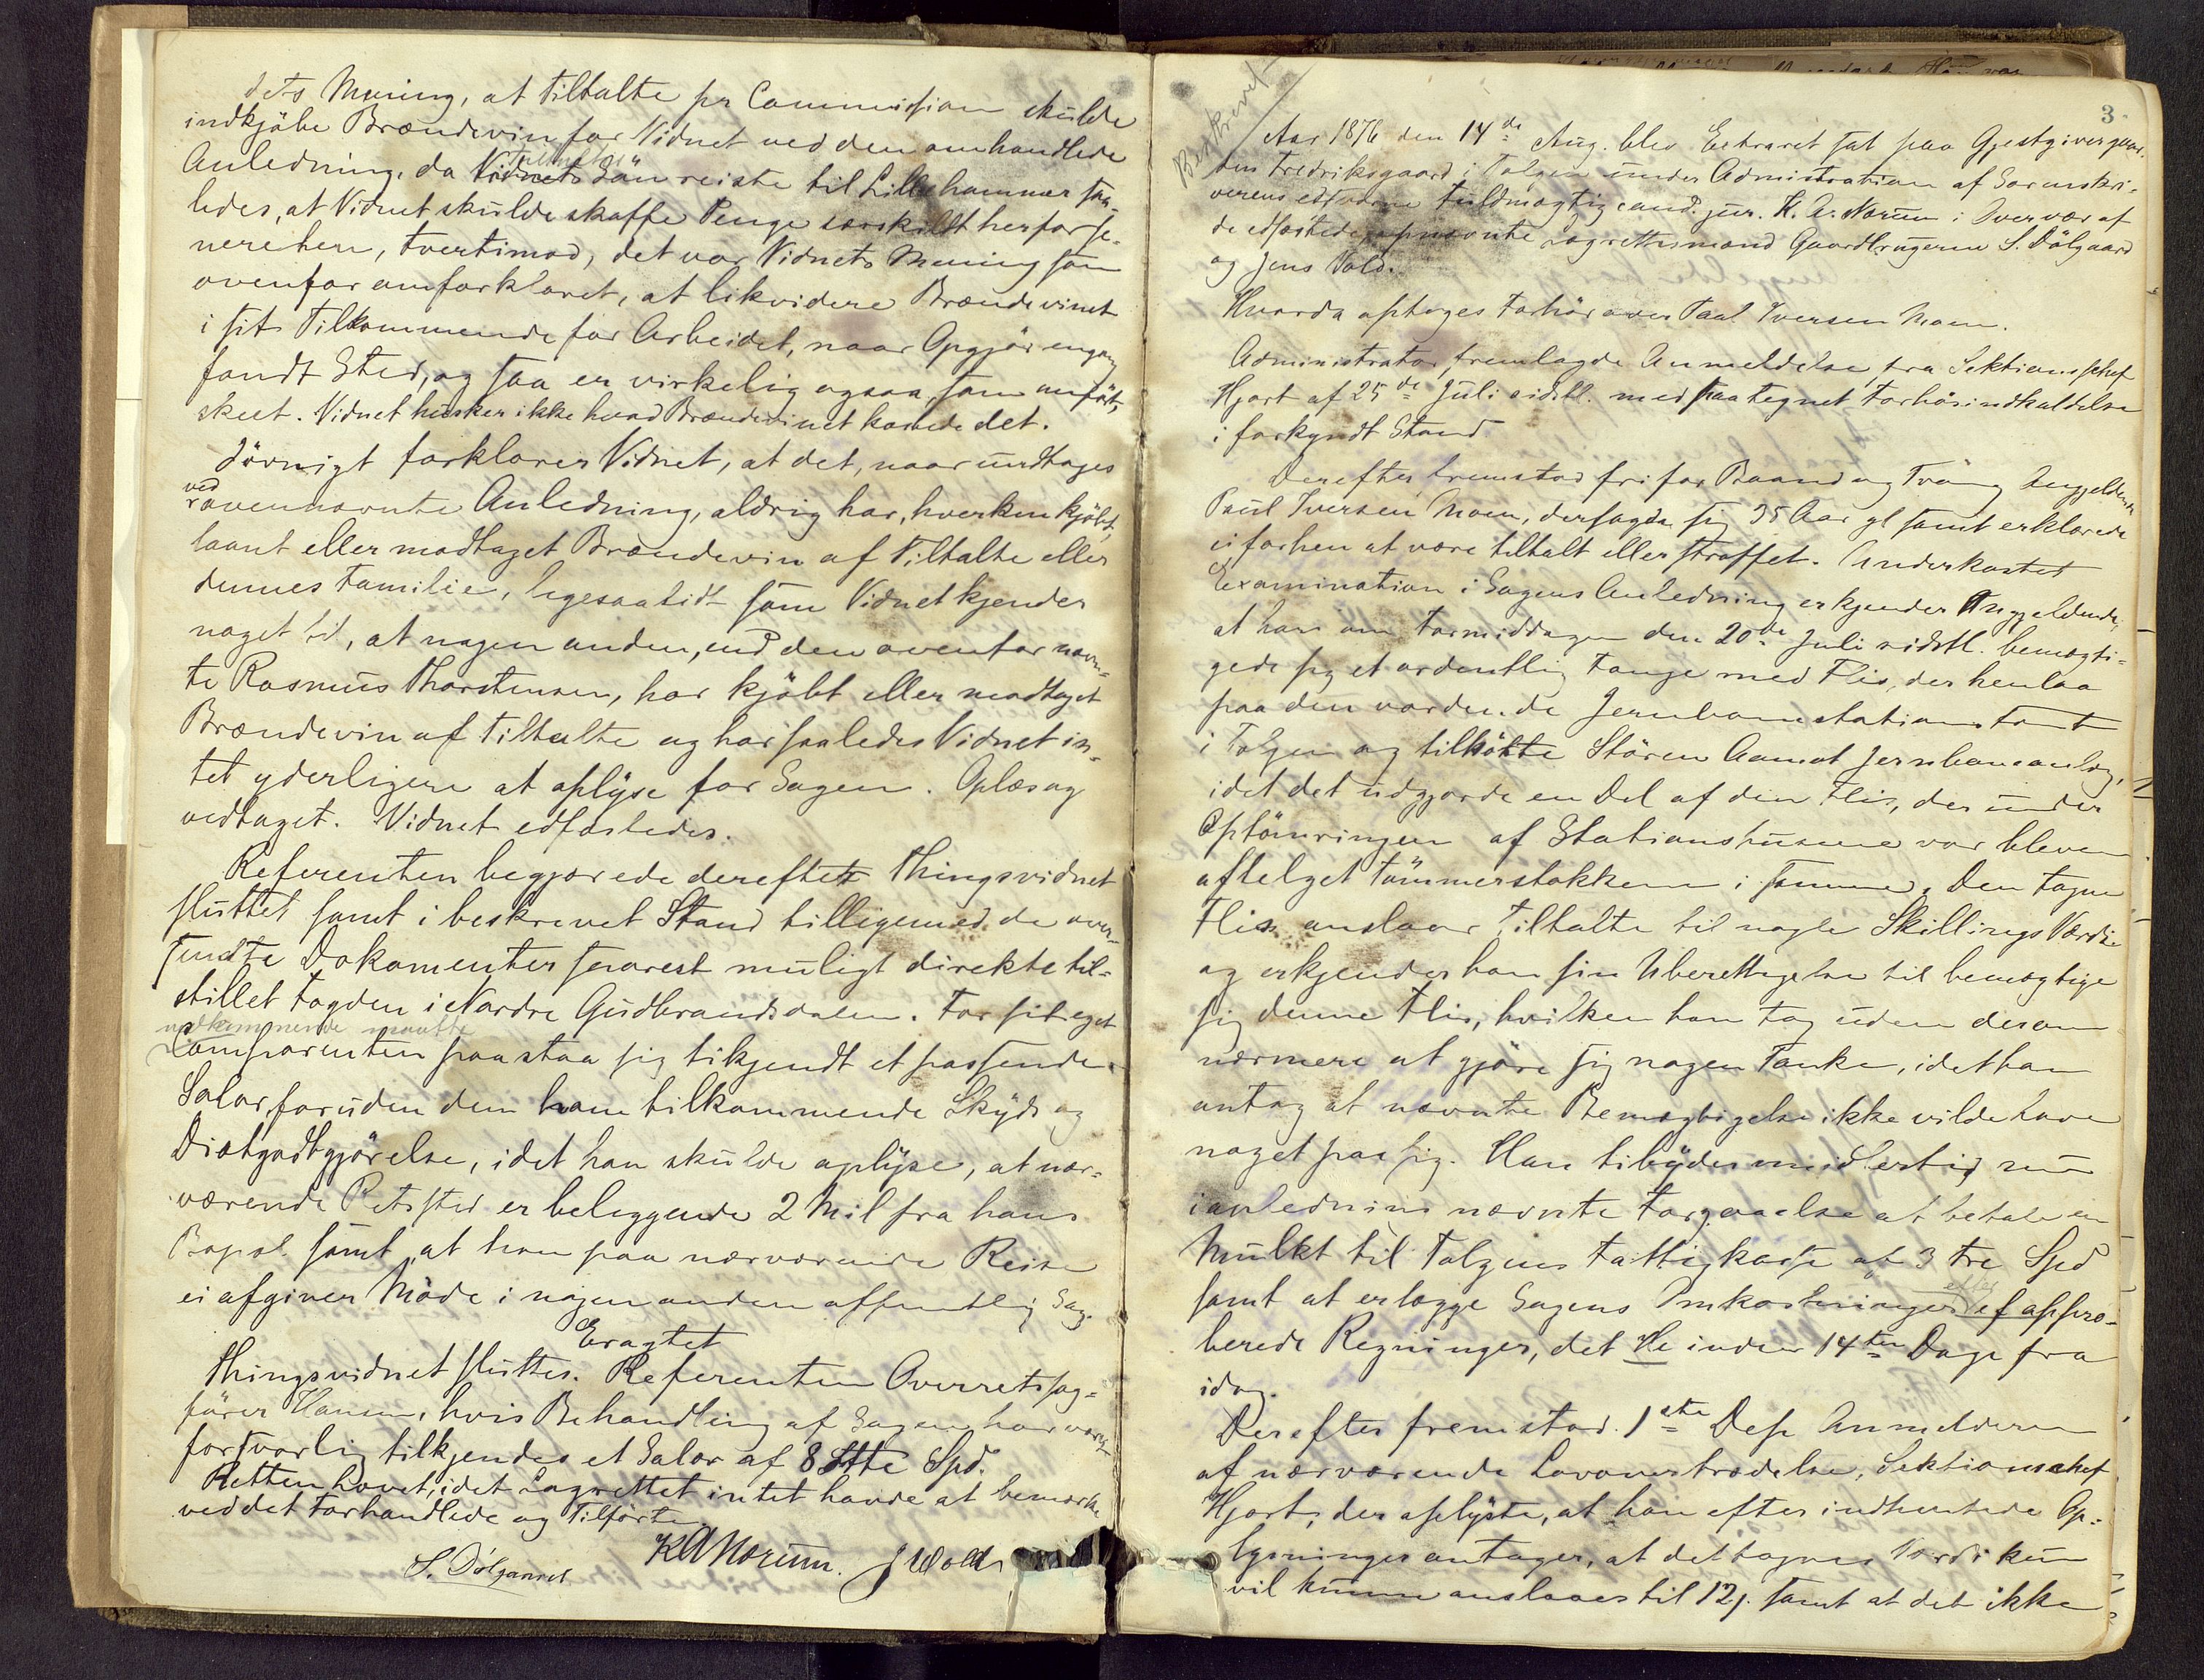 dets Mening, at Tiltalte pr Commission skulde
indkjøbe Brændevin for Vidnet ved den omhandlede
Anledning, da Vidnets Tiltaltes Søn reiste til Lillehammer saa-
ledes, at Vidnet skulde skaffe Penge særskildt herfor se-
nere hen, tvertimod, det var Vidnets Mening som
ovenfor omforklaret, at likvidere Brændevinet
i sit Tilkommende for Arbeidet, naar Opgjør engang
fandt Sted, og saa er virkelig ogsaa, som anført,
skeet. Vidnet husker ikke hvad Brændevinet kostede det.
Jövnigt forklarer Vidnet, at det, naar undtages
ved ovennævnte Anledning, aldrig har, hverken kjøbt,
laant eller modtaget Brændevin af Tiltalte eller
dennes Familie, ligesaalidt som Vidnet kjender
noget til, at nogen anden, end den ovenfor nævn-
te Rasmus Thorstensen, har kjøbt eller modtaget
Brændevin af Tiltalte og har saaledes Vidnet in-
tet yderligere at oplyse for Sagen. Oplæst og
vedtaget. Vidnet edfæstedes.
Referenten begjærede derefter Thingsvidnet
sluttet samt i beskrevet Stand tilligemed de over-
sendte Dokumenter snarest muligt direkte til-
stillet Fogden i Nordre Gudbrandsdalen. For sit eget
vedkommende maatte
Comparenten paastaa sig tilkjendt et passende
Salær foruden dem ham tilkommende Skyds og
Diætgodtgjørelse, idet han skulde oplyse, at nær-
værende Retssted er beliggende 2 Mil fra hans
Bopæl samt at han paa nærværende Reise
ei afgiver Møde i nogen anden offentlig Sag.
Eragtet
Thingsvidnet sluttes. Referenten Overretssag-
fører Hansen, hvis Behandling af Sagen har været
forsvarlig tilkjendes et Salær af 8 Otte Spd.
Retten hævet, idet Lagrettet intet havde at bemærke
ved det Forhandlede og Tilførte.
S. Dølgaard K A Nørum. J Vold
3
Beskrevet
Aar 1876 den 14de Aug. blev Extraret sat paa Gjestgivergaar-
den Fredriksgaard i Tolgen under Administration af Sorenskri-
verens edsvorne Fuldmægtig cand. jur. K. A. Nørum i Overvær af
de edfæstede opnævnte Lagrettesmænd Gaardbrugerne S. Dølgaard
og Jens Vold.
Hvorda optoges Forhør over Paal Iversen Moen.
Administrator fremlagde Anmeldelse fra Sektionschef
Hjort af 25de Juli sidstl. med paategnet Forhørsindkaldelse
i forkyndt Stand
Derefter fremstod fri for Baand og Tvang Angjeldende
Paul Iversen Moen, der sagde sig 35 Aar gl samt erklærede
ei forhen at være tiltalt eller straffet. Underkastet
Examination i Sagens Anledning erkjender Angjeldende,
at han om Formiddagen den 20de Juli sidstl. bemægti-
gede sig et ordentlig Fange med Flis, der henlaa
paa den vordende Jernbanestations Tomt
i Tolgen og tilhørte Støren Aamot Jernbaneanlæg,
idet det udgjorde en Del af den Flis, der under
Optømringen af Stationshusene var bleven
aftelget Tømmerstokkene i samme. Den tagne
Flis anslaar Tiltalte til nogle Skillings Værdi
og erkjender han sin Uberettigelse til bemægtige
sig denne Flis, hvilken han tog uden derom
nærmere at gjøre sig nogen Tanke, idet han
antog at nævnte Bemægtigelse ikke vilde have
noget paa sig. Han tilbyder imidlertid nu
i anledning nævnte Forgaaelse at betale en
Mulkt til Tolgens Fattigkasse af 3 tre Spd
samt at erlægge Sagens Omkostninger efter appro-
berede Regninger, det Hele inden 14ten Dage fra
idag.
Derefter fremstod 1ste Dep Anmelderen
af nærværende Lovovertrædelse, Sektionschef
Hjort, der oplyste, at han efter indhentede Op-
lysninger antager, at det tagnes Værdi kun
vil kunne anslaaes til 12 s. samt at det ikke